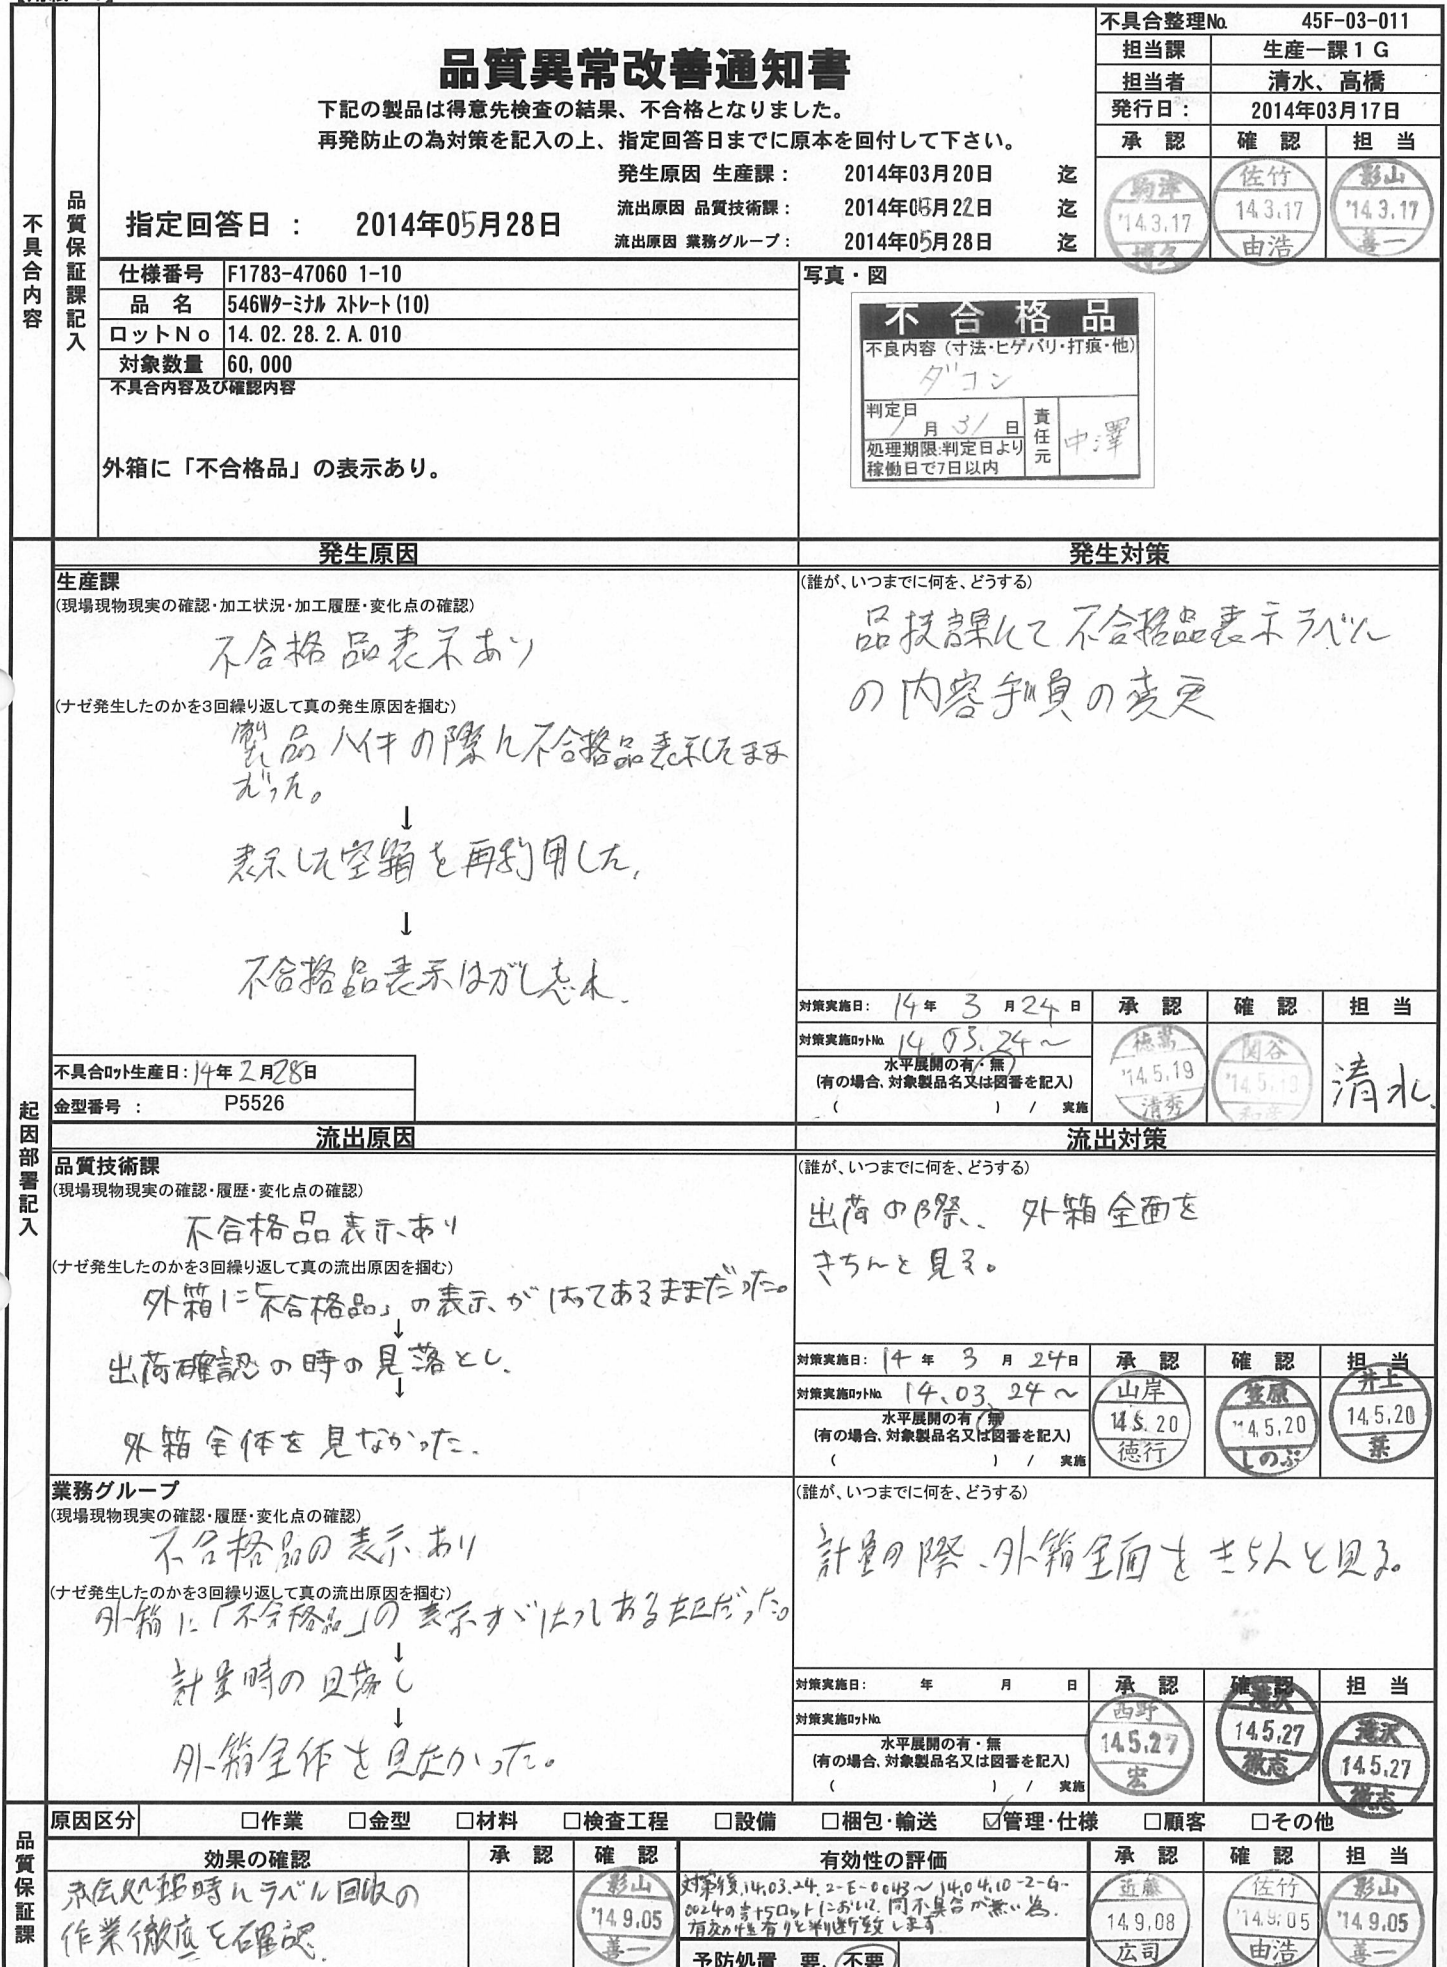 不具合整理No. 45F-03-011
担当課 生産一課1G
担当者 清水、高橋
発行日： 2014年03月17日
承認 確認 担当
駒津 '14.3.17 博久
佐竹 14.3.17 由浩
影山 '14.3.17 善一
品質異常改善通知書
下記の製品は得意先検査の結果、不合格となりました。
再発防止の為対策を記入の上、指定回答日までに原本を回付して下さい。
発生原因 生産課： 2014年03月20日 迄
流出原因 品質技術課： 2014年05月22日 迄
流出原因 業務グループ： 2014年05月28日 迄
指定回答日 ： 2014年05月28日
不具合内容
品質保証課記入
仕様番号 F1783-47060 1-10
品 名 546Wターミナル ストレート(10)
ロットNo 14.02.28.2.A.010
対象数量 60,000
不具合内容及び確認内容
外箱に「不合格品」の表示あり。
写真・図
不合格品
不良内容（寸法・ヒゲバリ・打痕・他）
ダコン
判定日
1月31日
処理期限:判定日より
稼働日で7日以内
責任元
中澤
起因部署記入
発生原因
生産課
(現場現物現実の確認・加工状況・加工履歴・変化点の確認)
不合格品表示あり
(ナゼ発生したのかを3回繰り返して真の発生原因を掴む)
製品ハイキの際に不合格品表示したまま
だった。
↓
表示した空箱を再利用した。
↓
不合格品表示はがし忘れ.
不具合ロット生産日：14年2月28日
金型番号 ： P5526
発生対策
(誰が、いつまでに何を、どうする)
品技課にて不合格品表示ラベル
の内容手順の変更
対策実施日： 14年 3月24日
対策実施ロットNo. 14.03.24～
水平展開の有・無
(有の場合、対象製品名又は図番を記入)
( ) / 実施
承認 確認 担当
徳嵩 '14.5.19 清秀
関谷 '14.5.19
清水
流出原因
品質技術課
(現場現物現実の確認・履歴・変化点の確認)
不合格品表示あり
(ナゼ発生したのかを3回繰り返して真の流出原因を掴む)
外箱に「不合格品」の表示がはってあるままだった。
↓
出荷確認の時の見落とし.
↓
外箱全体を見なかった.
流出対策
(誰が、いつまでに何を、どうする)
出荷の際、外箱全面を
きちんと見る。
対策実施日： 14年 3月24日
対策実施ロットNo. 14.03.24～
水平展開の有・無
(有の場合、対象製品名又は図番を記入)
( ) / 実施
承認 確認 担当
山岸 14.5.20 徳行
笠原 '14.5.20 しのぶ
井上 14.5.20 葉
業務グループ
(現場現物現実の確認・履歴・変化点の確認)
不合格品の表示あり
(ナゼ発生したのかを3回繰り返して真の流出原因を掴む)
外箱に「不合格品」の表示がはってあるままだった。
↓
計量時の見落し
↓
外箱全体を見なかった。
(誰が、いつまでに何を、どうする)
計量の際、外箱全面をきちんと見る。
対策実施日： 年 月 日
対策実施ロットNo.
水平展開の有・無
(有の場合、対象製品名又は図番を記入)
( ) / 実施
承認 確認 担当
西野 14.5.27 宏
滝沢 14.5.27 徹志
滝沢 14.5.27 徹志
品質保証課
原因区分 □作業 □金型 □材料 □検査工程 □設備 □梱包・輸送 ☑管理・仕様 □顧客 □その他
効果の確認 承認 確認
赤伝処理時にラベル回収の
作業徹底を確認.
影山 '14.9.05 善一
有効性の評価 承認 確認 担当
対策後,14.03.24.2-E-0043～14.04.10-2-G-
0024の計5ロットにおいて、同不具合が無い為.
有効性有りと判断致します.
近藤 14.9.08 広司
佐竹 '14.9.05 由浩
影山 '14.9.05 善一
予防処置 要.不要